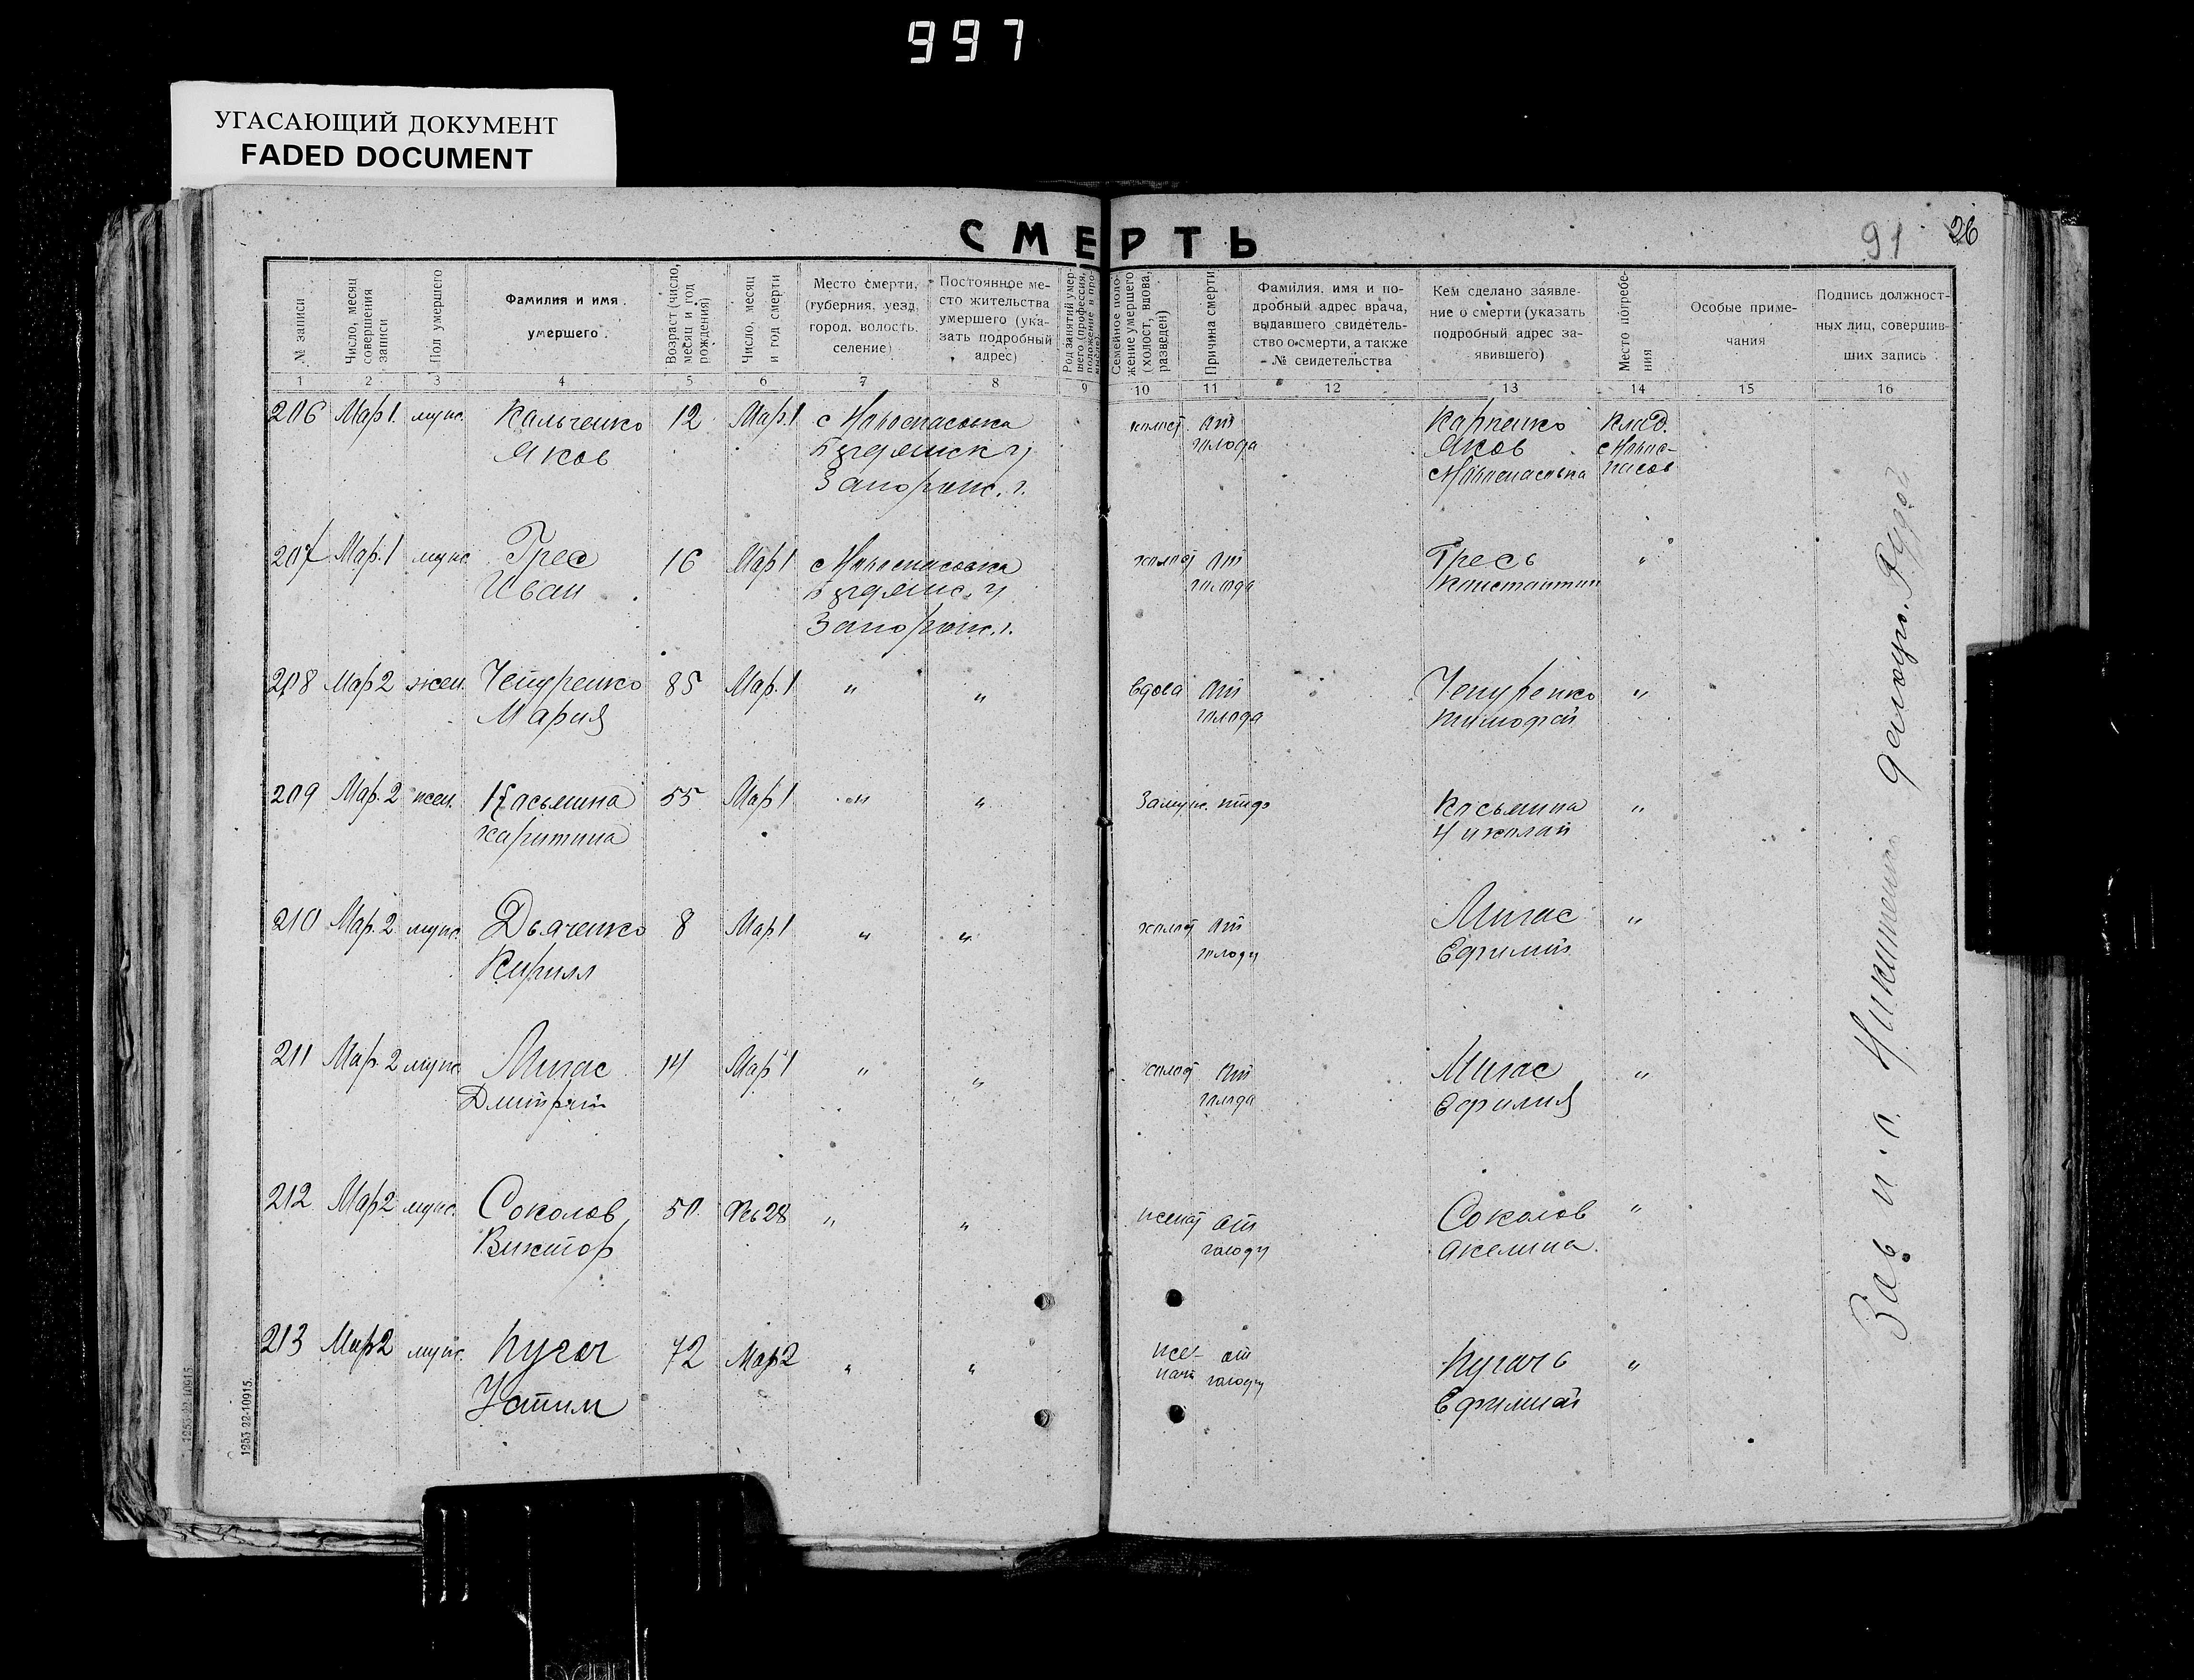 997
УГАСАЮЩИЙ ДОКУМЕНТ
FADED DOCUMENT
СМЕРТЬ
91 26
№ записи
Число, месяц совершения записи
Пол умершего
Фамилия и имя умершего.
Возраст (число, месяц и год рождения)
Число, месяц и год смерти
Место смерти, (губерния, уезд, город, волость, селение)
Постоянное место жительства умершего (указать подробный адрес)
Род занятий умершего (профессия, положение в промысле)
Семейное положение умершего (холост, вдова, разведен)
Причина смерти
Фамилия, имя и подробный адрес врача, выдавшего свидетельство о смерти, а также № свидетельства
Кем сделано заявление о смерти (указать подробный адрес заявившего)
Место погребения
Особые примечания
Подпись должностных лиц, совершивших запись
1 2 3 4 5 6 7 8 9 10 11 12 13 14 15 16
206 Мар 1. муж. Кальченко 12 Мар. 1 с Новоспасовка холост От Карпенко Клад.
Яков Бердянск у голода Яков с Новоспасов
Запорож. г. с Новоспасовка
207 Мар. 1 муж Грес 16 Мар 1 с Новоспасовка холост От Гресь "
Иван Бердянс. у голода Константин
Запорож. г.
208 Мар 2 жен. Чепуренко 85 Мар. 1 " " вдова От Чепуренко "
Мария голода Тимофей
209 Мар. 2 жен. Касьмина 55 Мар 1 " " Замуж. Касьмина "
Харитина Николай
210 Мар. 2 муж. Дьяченко 8 Мар. 1 " " холост От Мигас "
Кирилл голоду Ефимий
211 Мар. 2 муж Мигас 14 Мар 1 " " холост От Мигас "
Дмитрий голода Ефимия
212 Мар 2 муж. Соколов 50. Фев 28 " " женат От Соколов "
Виктор голоду Акелина.
213 Мар 2 муж. Пугач 72 Мар 2 " " женат от Пугач "
Устим голоду Ефимий
Зав п.о. Никитенко
1253 22-10915.
1253 22-10915